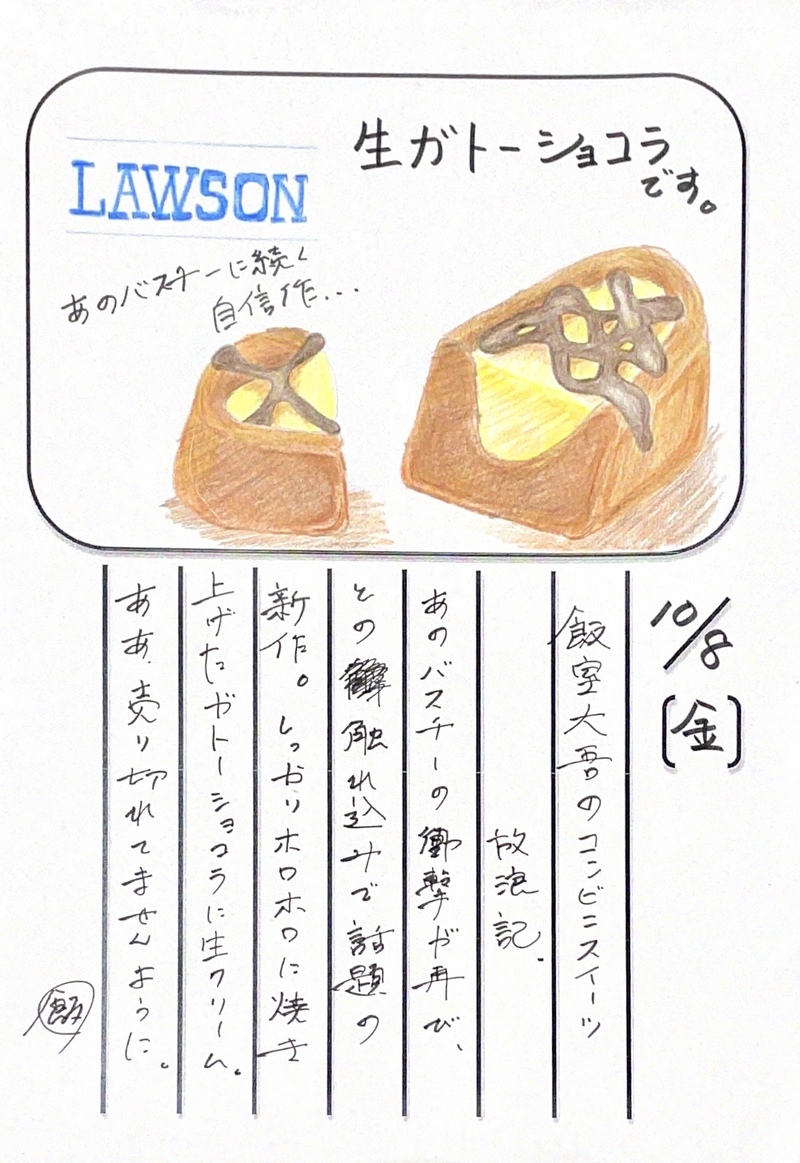 LAWSON
生ガトーショコラ
です。
あのバスチーに続く
自信作...
10/8
[金]
飯室大吾のコンビニスイーツ
放浪記.
あのバスチーの衝撃が再び、
との触れ込みで話題の
新作。しっかりホロホロに焼き
上げたガトーショコラに生クリーム。
ああ、売り切れてませんように。
飯